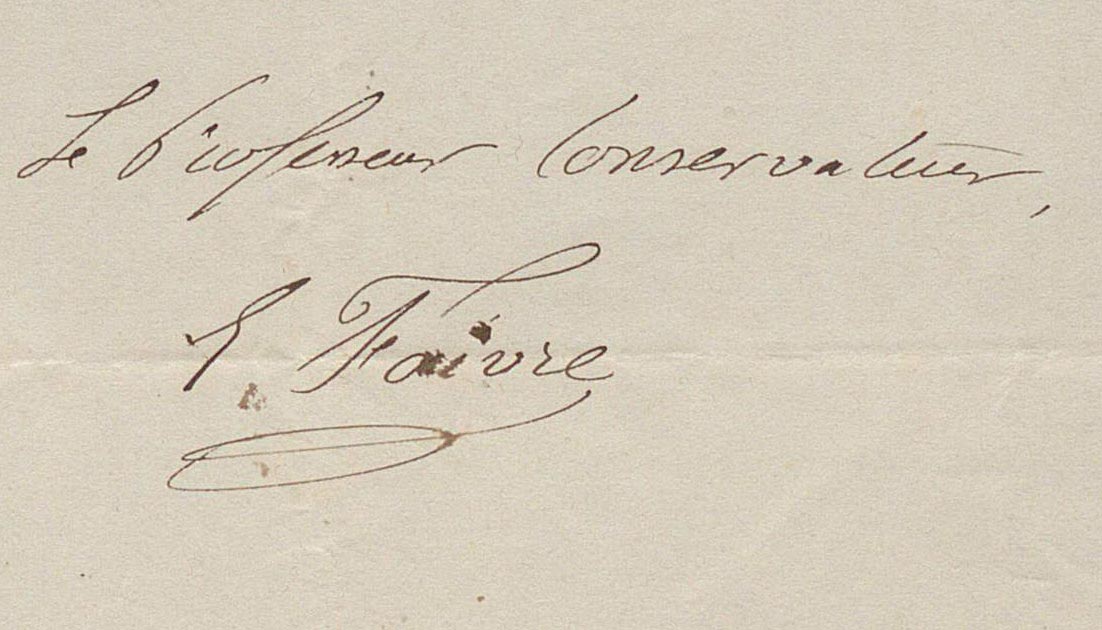 Le Professeur Conservateur,
E Faivre